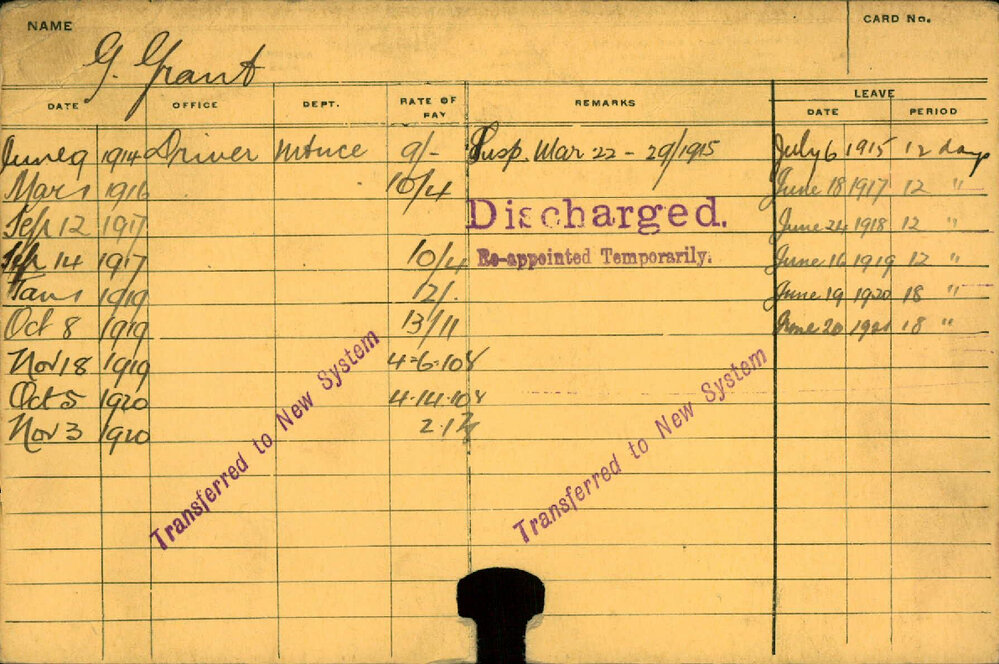 NAME CARD No.
G. Grant
DATE OFFICE DEPT. RATE OF PAY REMARKS LEAVE
DATE PERIOD
June 9 1914 Driver Mtnce 9/- Susp. Mar 22 - 29/1915 July 6 1915 12 days
Mar 1 1916 10/4 June 18 1917 12 "
Sep 12 1917 Discharged. June 24 1918 12 "
Sep 14 1917 10/4 Re-appointed Temporarily. June 16 1919 12 "
Jan 1 1919 12/. June 19 1920 18 "
Oct 8 1919 13/11 June 20 1921 18 "
Nov 18 1919 4-6-10
Oct 5 1920 4.14.10
Nov 3 1920 2.1
Transferred to New System
Transferred to New System